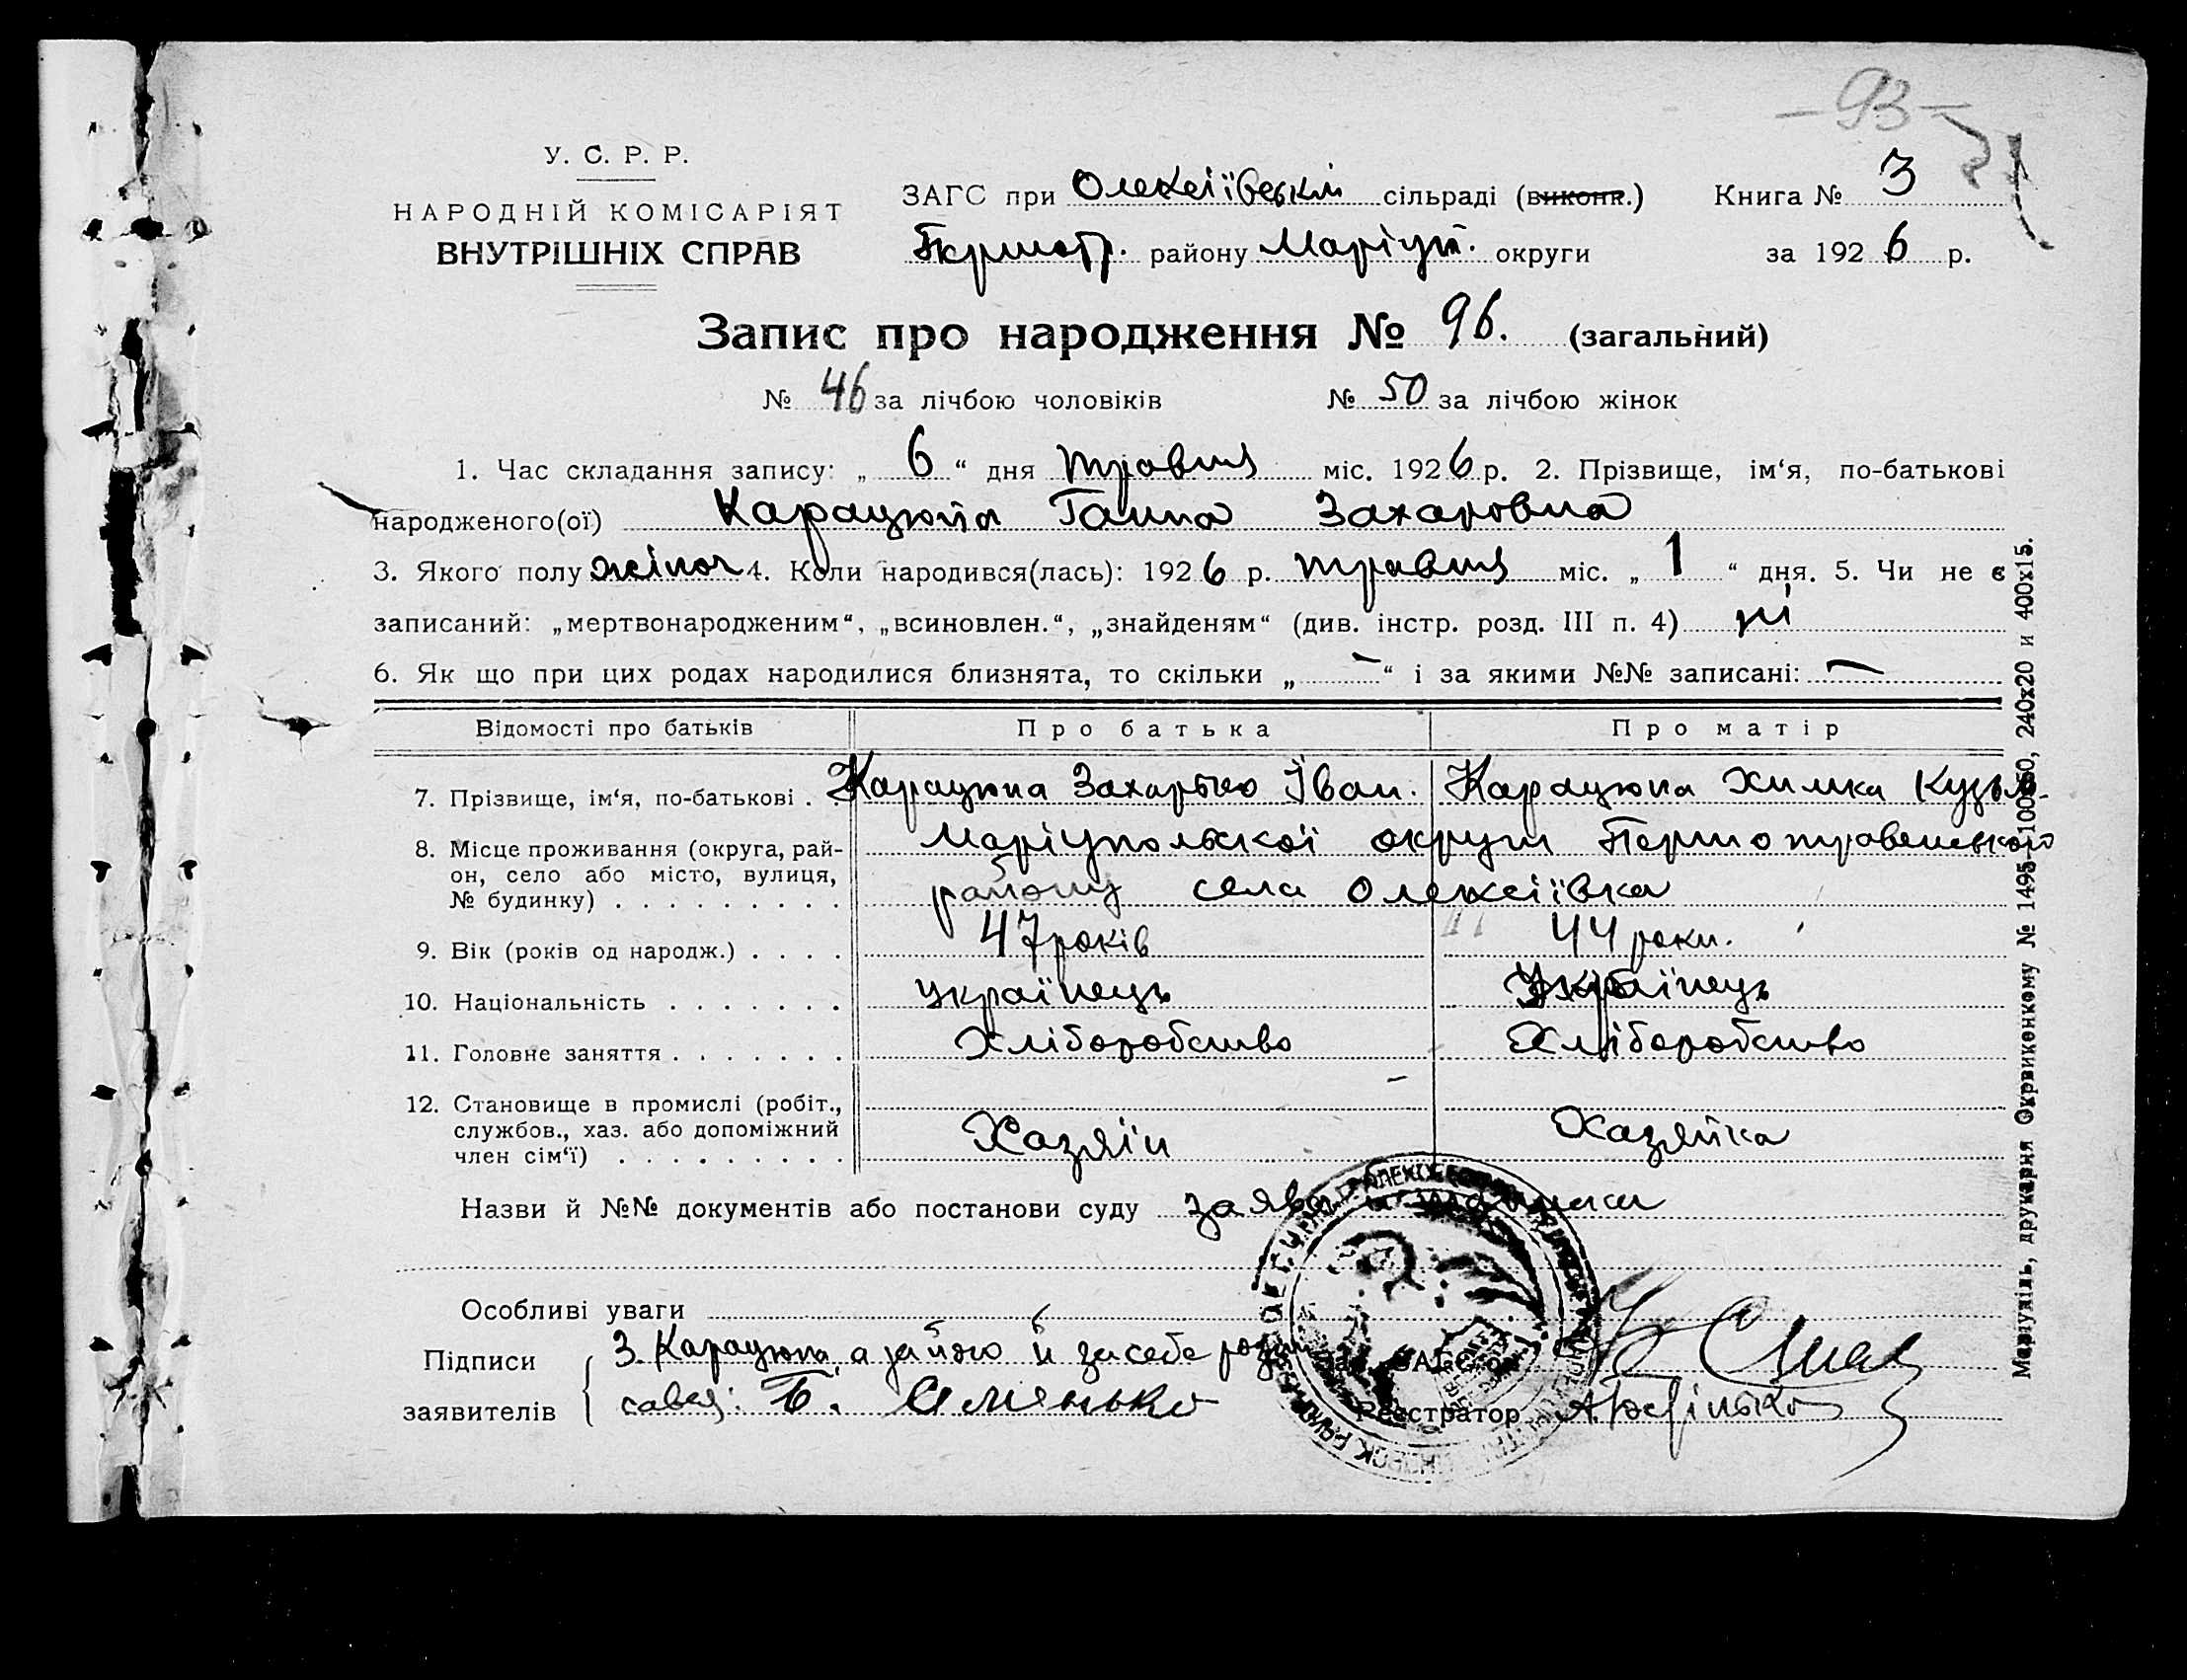 -93-
У. С. Р. Р.
НАРОДНІЙ КОМІСАРІЯТ
ВНУТРІШНІХ СПРАВ
ЗАГС при Олексіївській сільраді (виконк.) Книга № 3
району Маріуп. округи за 1926 р.
Запис про народження № 96. (загальний)
№ 46 за лічбою чоловіків № 50 за лічбою жінок
1. Час складання запису: „6“ дня травня міс. 1926 р. 2. Прізвище, ім‘я, по-батькові
народженого(ої) Карацюпа Ганна Захаровна
3. Якого полу жіноч 4. Коли народився(лась): 1926 р. травня міс. „1“ дня. 5. Чи не є
записаний: „мертвонародженим“, „всиновлен.“, „знайденям“ (див. інстр. розд. III п. 4) ні
6. Як що при цих родах народилися близнята, то скільки „—“ і за якими №№ записані: —
Відомості про батьків Про батька Про матір
7. Прізвище, ім‘я, по-батькові . Карацюпа Іван. Карацюпа Химка Кузьм.
8. Місце проживання (округа, рай- Маріупольскої округи Першотравенського
он, село або місто, вулиця, району села Олексіївка
№ будинку) . . . . . . . . .
9. Вік (років од народж.) . . . . 47 років 44 роки.
10. Національність . . . . . . . українець Українець
11. Головне заняття . . . . . . . Хліборобство Хліборобство
12. Становище в промислі (робіт., —
службов., хаз. або допоміжний Хазяїн Хазяйка
член сім‘ї) . . . . . . . . .
Назви й №№ документів або постанови суду заява
Особливі уваги
Підписи З. Карацюпа, а за його й за себе
заявителів Реєстратор
Маріупіль, друкарня Окрвиконкому № 1495-10000, 240х20 и 400х15.